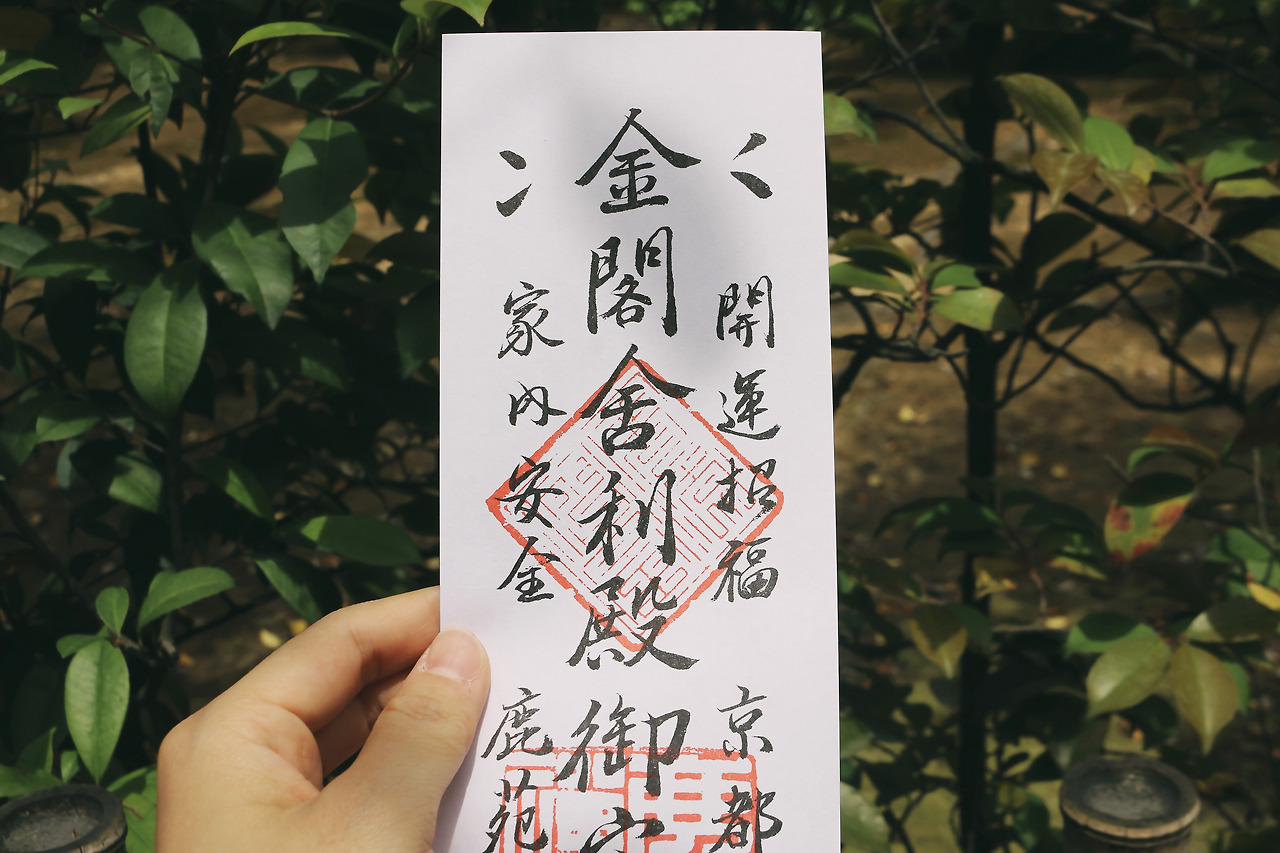 開運招福 京都
金閣舍利殿御守
家内安全 鹿苑